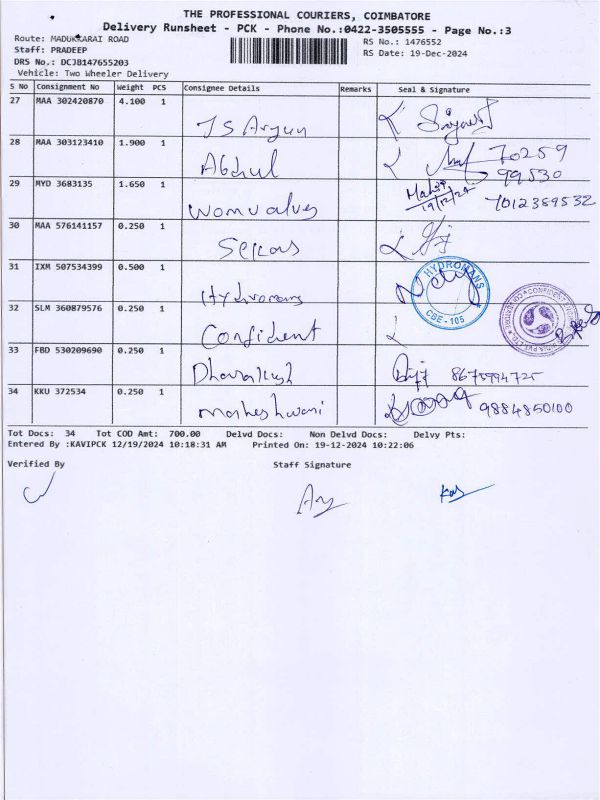 THE PROFESSIONAL COURIERS, COIMBATORE
Delivery Runsheet - PCK - Phone No.:0422-3505555 - Page No.:3
Route: MADUKKARAI ROAD
RS No.: 1476552
Staff: PRADEEP
RS Date: 19-Dec-2024
DRS No.: DCJB147655203
Vehicle: Two Wheeler Delivery
S No Consignment No Weight PCS Consignee Details Remarks Seal & Signature
27 MAA 302420870 4.100 1
JS Arjun
28 MAA 303123410 1.900 1
Abdul 70259
99530
29 MYD 3683135 1.650 1
Womvalves 19/12/24 7012389532
30 MAA 576141157 0.250 1
31 IXM 507534399 0.500 1
Hydromans HYDROMANS
CBE - 105
32 SLM 360879576 0.250 1
Confident
33 FBD 530209690 0.250 1
34 KKU 372534 0.250 1
Maheshwari 9884850100
Tot Docs: 34 Tot COD Amt: 700.00 Delvd Docs: Non Delvd Docs: Delvy Pts:
Entered By :KAVIPCK 12/19/2024 10:18:31 AM Printed On: 19-12-2024 10:22:06
Verified By Staff Signature